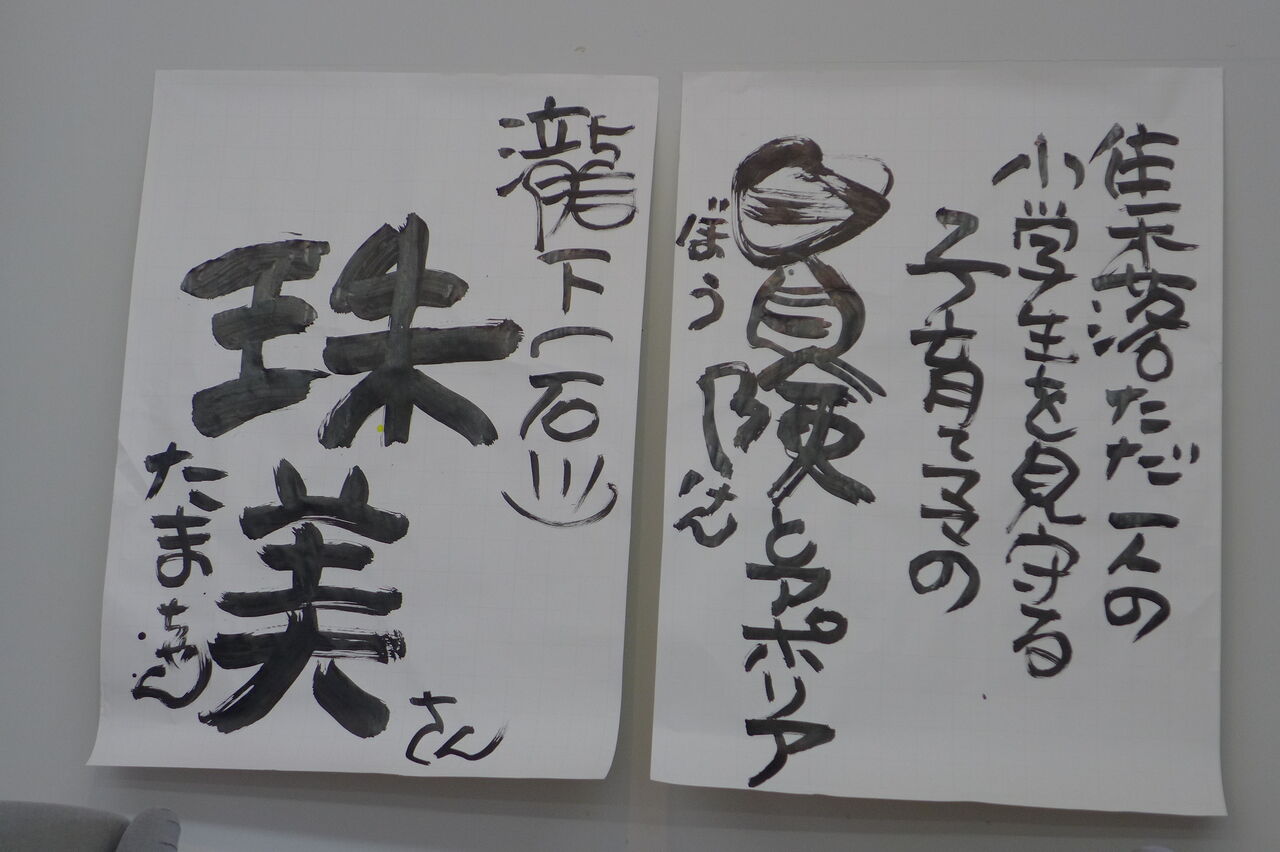 集落ただ一人の
小学生を見守る
子育てママの
冒険とアポリア
ぼう
けん
瀧下(石川)
珠美
さん
たまちゃん